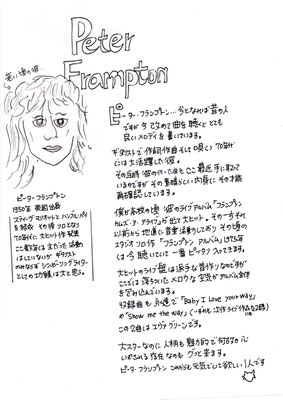 Peter
Frampton
若い頃の彼
ピーター・フランプトン…今となれば昔の人
ですが今改めて曲を聴くととても
良いメロディを書いています。
ギタリストで作詞作曲そして唄い70年代
には大活躍した彼。
その当時彼の作った曲もここ最近手に取って
いるのですがその素晴らしい内容にその才能
再確認しています。
僕が高校の頃 彼のライブアルバム「フランプトン
カムズ・アライブ」が出て大ヒット。その一方それ
以前から地道に音楽活動しておりその頃の
スタジオソロ作「フランプトン アルバム」1975年
は今聴いていて一番ピッタリ入ってきます。
大ヒットのライブ盤は派手な音作りなのですが
ここでは落ちついたスロウな空気がアルバム全体
を包み込んでいます。
収録曲も永遠で「Baby I Love your Way」
や「Show me the way」(いずれもライブ作にも収録)
この2曲はエヴァグリーンです。
大スターなのに人柄も魅力的で
いわされる存在なのもグッと来ます。
ピーター・フランプトン これからも元気でいて欲しい1人です
ピーター・フランプトン
1950年 英国出身
スティーヴ・マリオットとハンブルパイ
を結成 その後ソロとなり
70年代に大ヒット作発表
ここ数年はまた
はしていないが ギタリスト
のみならずシンガーソングライター
としての力領は大と思う。